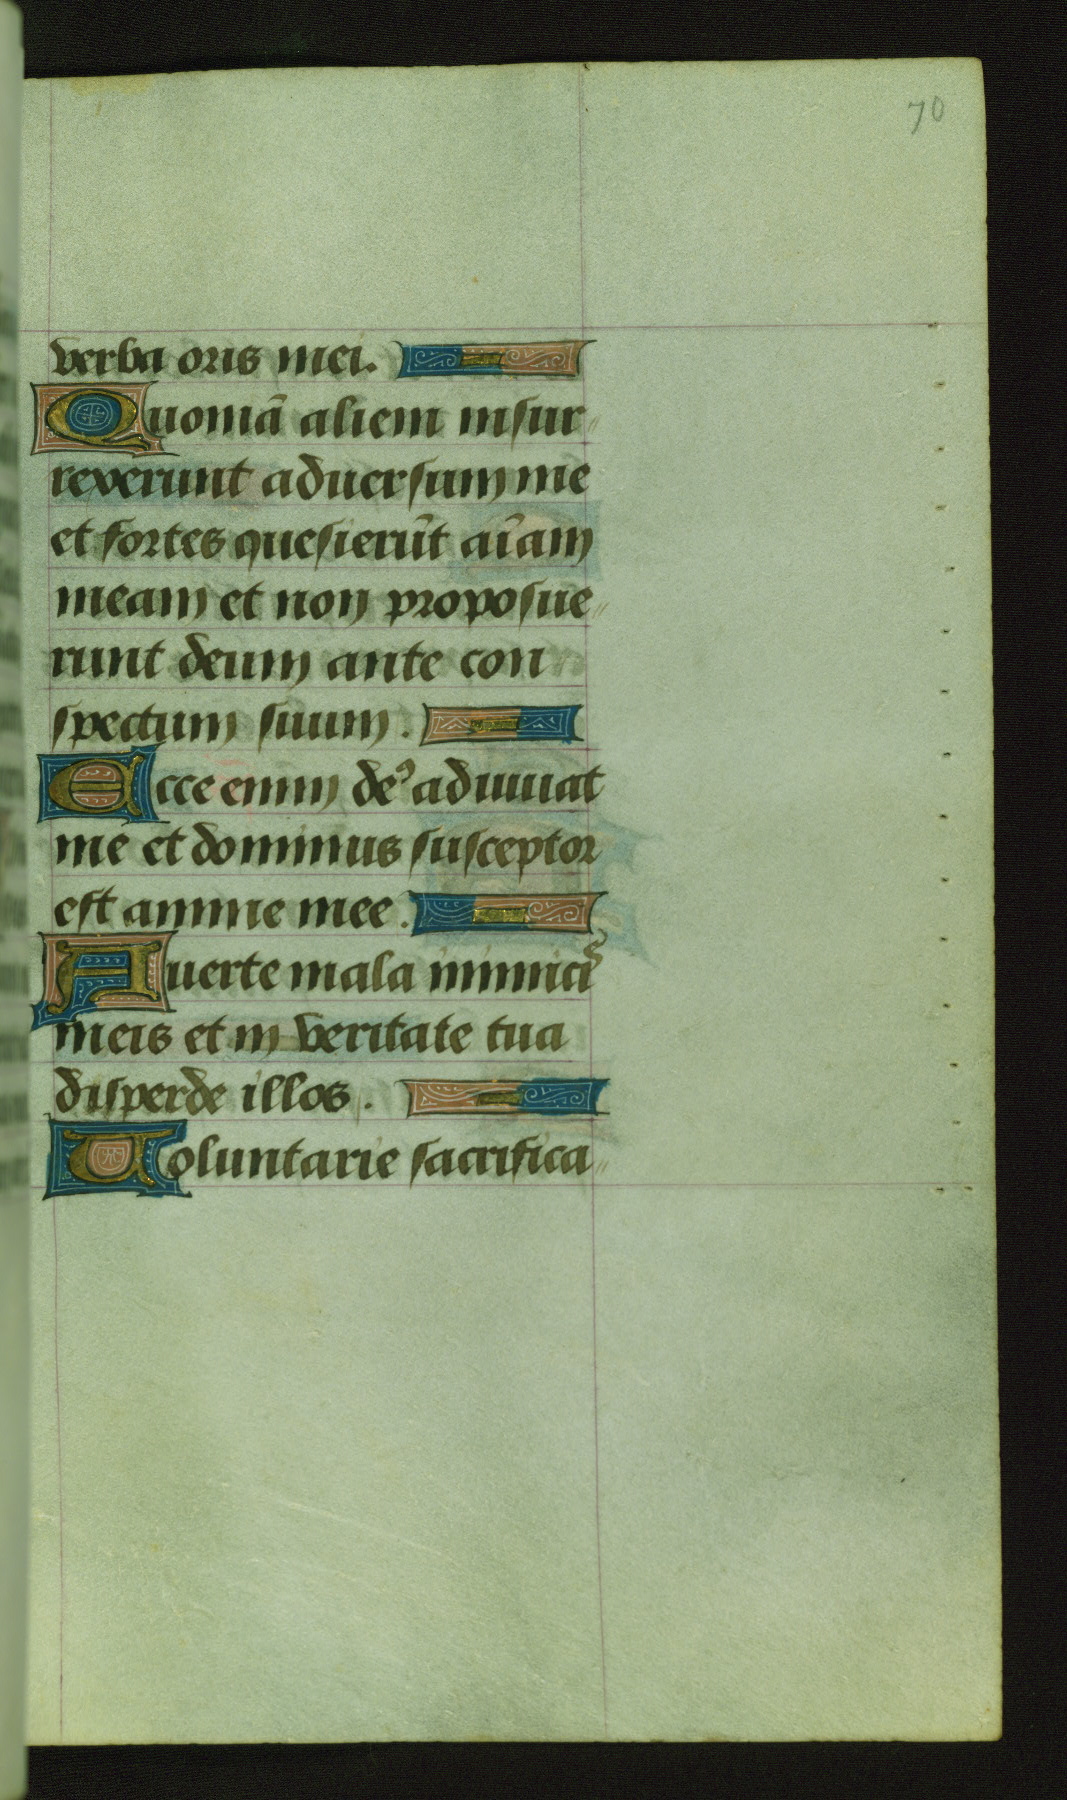 70
verba oris mei.
Quoniā alieni insur
rexerunt aduersum me
et fortes quesierūt aīam
meam et non proposue
runt deum ante con
spectum suum.
Ecce enim de᾿ adiuuat
me et dominus susceptor
est anime mee.
Auerte mala inimicis
meis et in veritate tua
disperde illos.
Uoluntarie sacrifica